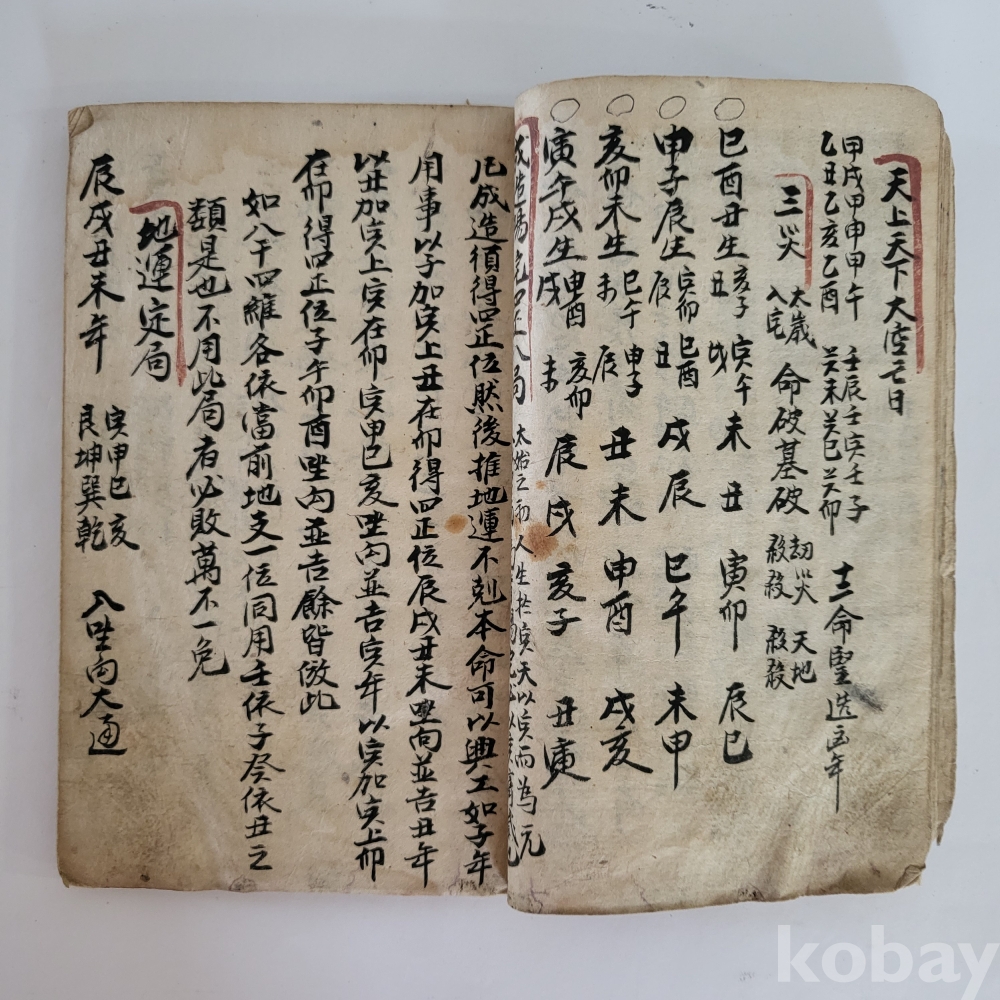 天上天下大空亡日
甲戌甲申甲午 壬辰壬寅壬子
乙丑乙亥乙酉 癸未癸巳癸卯
十二命竪造凶年
三災 太歲入宅 命破墓破 劫殺 災殺 天殺 地殺
巳酉丑生 亥子丑 寅午戌 未丑 寅卯 辰巳
申子辰生 寅卯辰 巳酉丑 戌辰 巳午 未申
亥卯未生 巳午未 申子辰 丑未 申酉 戌亥
寅午戌生 申酉戌 亥卯未 辰戌 亥子 丑寅
成造 局 太始之 人生於寅天以寅而為元
凡成造須得四正位然後推地運不剋本命可以興工如子年
用事以子加寅上丑在卯得四正位辰戌丑未坐向並吉丑年
以丑加寅上寅在卯寅申巳亥坐向並吉寅年以寅加寅上卯
在卯得四正位子午卯酉坐向並吉餘皆倣此
如八干四維各依當前地支一位同用壬依子癸依丑之
類是也不用此局者必敗萬不一免
地運定局
辰戌丑未年 寅申巳亥 艮坤巽乾 入坐向大通
kobay